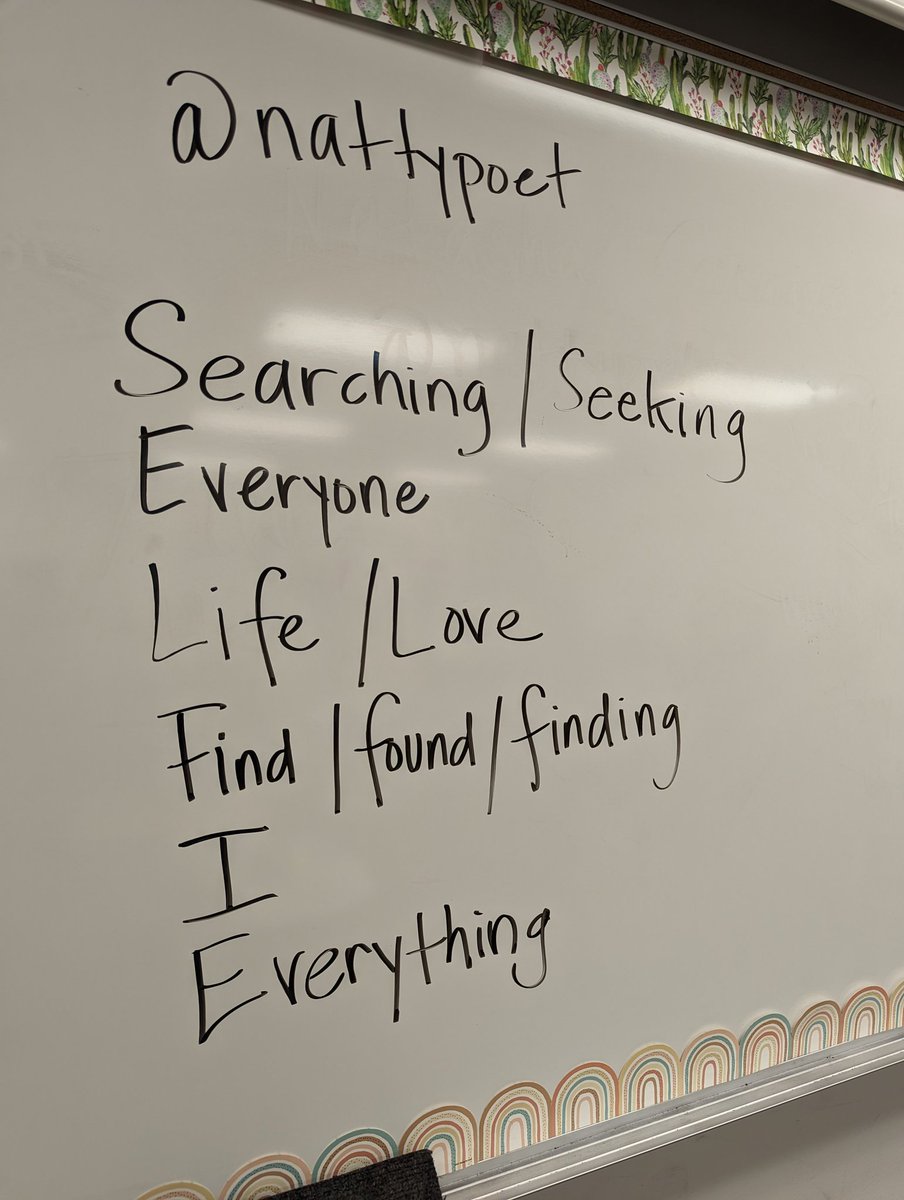 @nattypoet
Searching / Seeking
Everyone
Life / Love
Find / found / finding
I
Everything